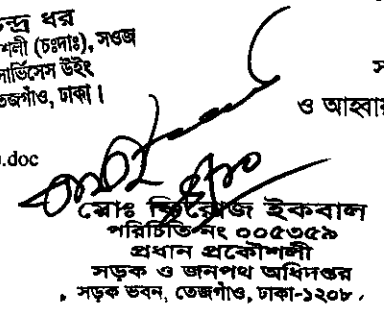 চন্দ্র ধর
শলী (চঃদাঃ), সওজ
সার্ভিসেস উইং
তেজগাঁও, ঢাকা।
স
ও আহবায়
.doc
মোঃ ফিরোজ ইকবাল
পরিচিতি নং ০০৫৩৫৯
প্রধান প্রকৌশলী
সড়ক ও জনপথ অধিদপ্তর
সড়ক ভবন, তেজগাঁও, ঢাকা-১২০৮